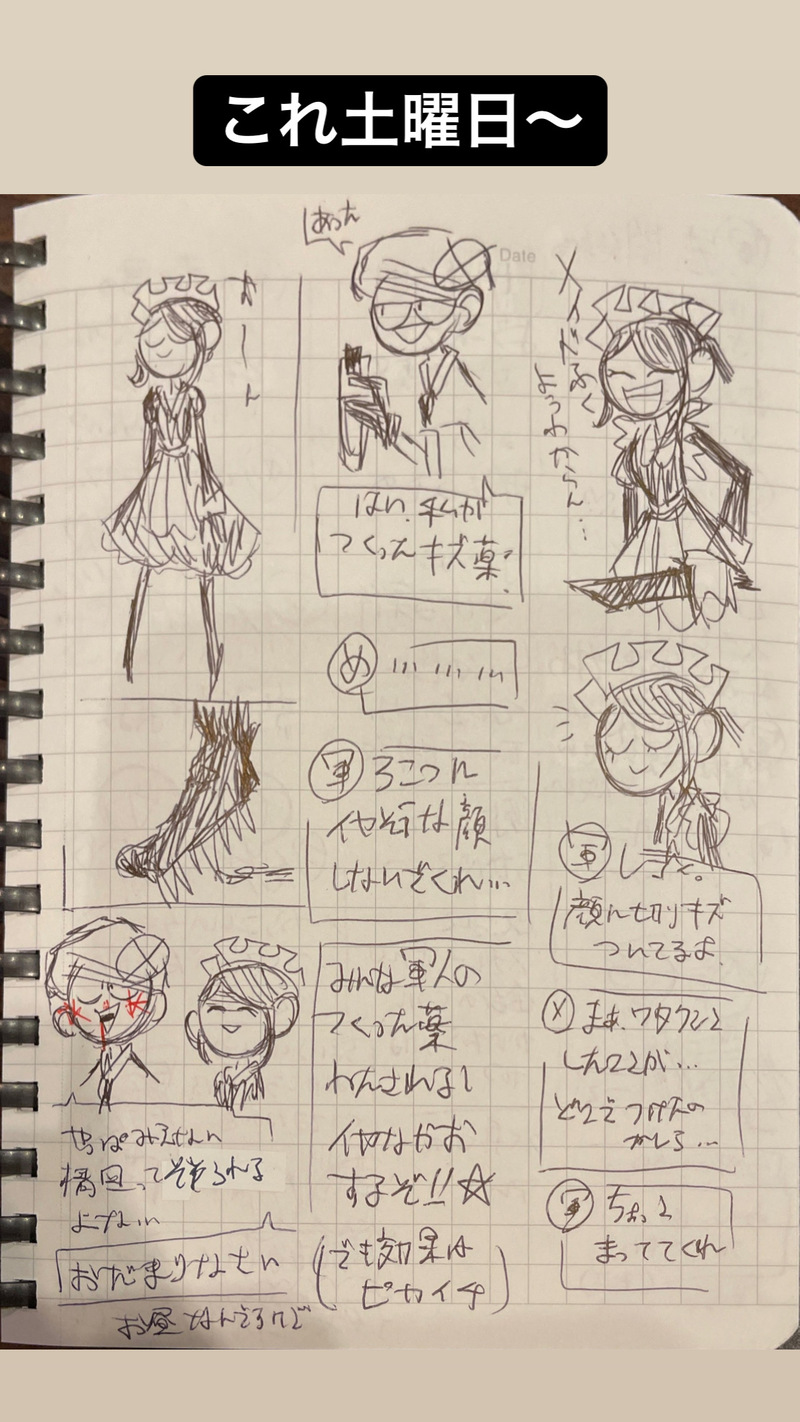 これ土曜日〜
Date
メイドふく
ようわからん…
軍 しずく。
顔に切りキズ
ついてるよ。
メ まあ、ワタクシと
したことが…
どこでつけたの
かしら…
軍 ちょっと
まっててくれ
あった
はい、私が
つくったキズ薬。
め … … …
軍 ろこつに
イヤそうな顔
しないでくれ…
みんな軍人の
つくった薬
わたされると
イヤなかお
するぞ!!☆
(でも効果は
ピカイチ)
おーん
よ
おだまりなさい
お昼なんですけど